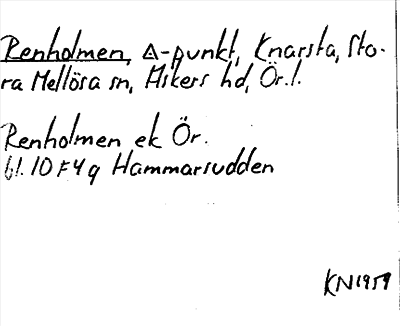 Renholmen, △-punkt, Knarsta, Sto-
ra Mellösa sn, Askers hd, Ör.l.
Renholmen ek Ör.
bl. 10 F 4 g Hammarsudden
KN 1959